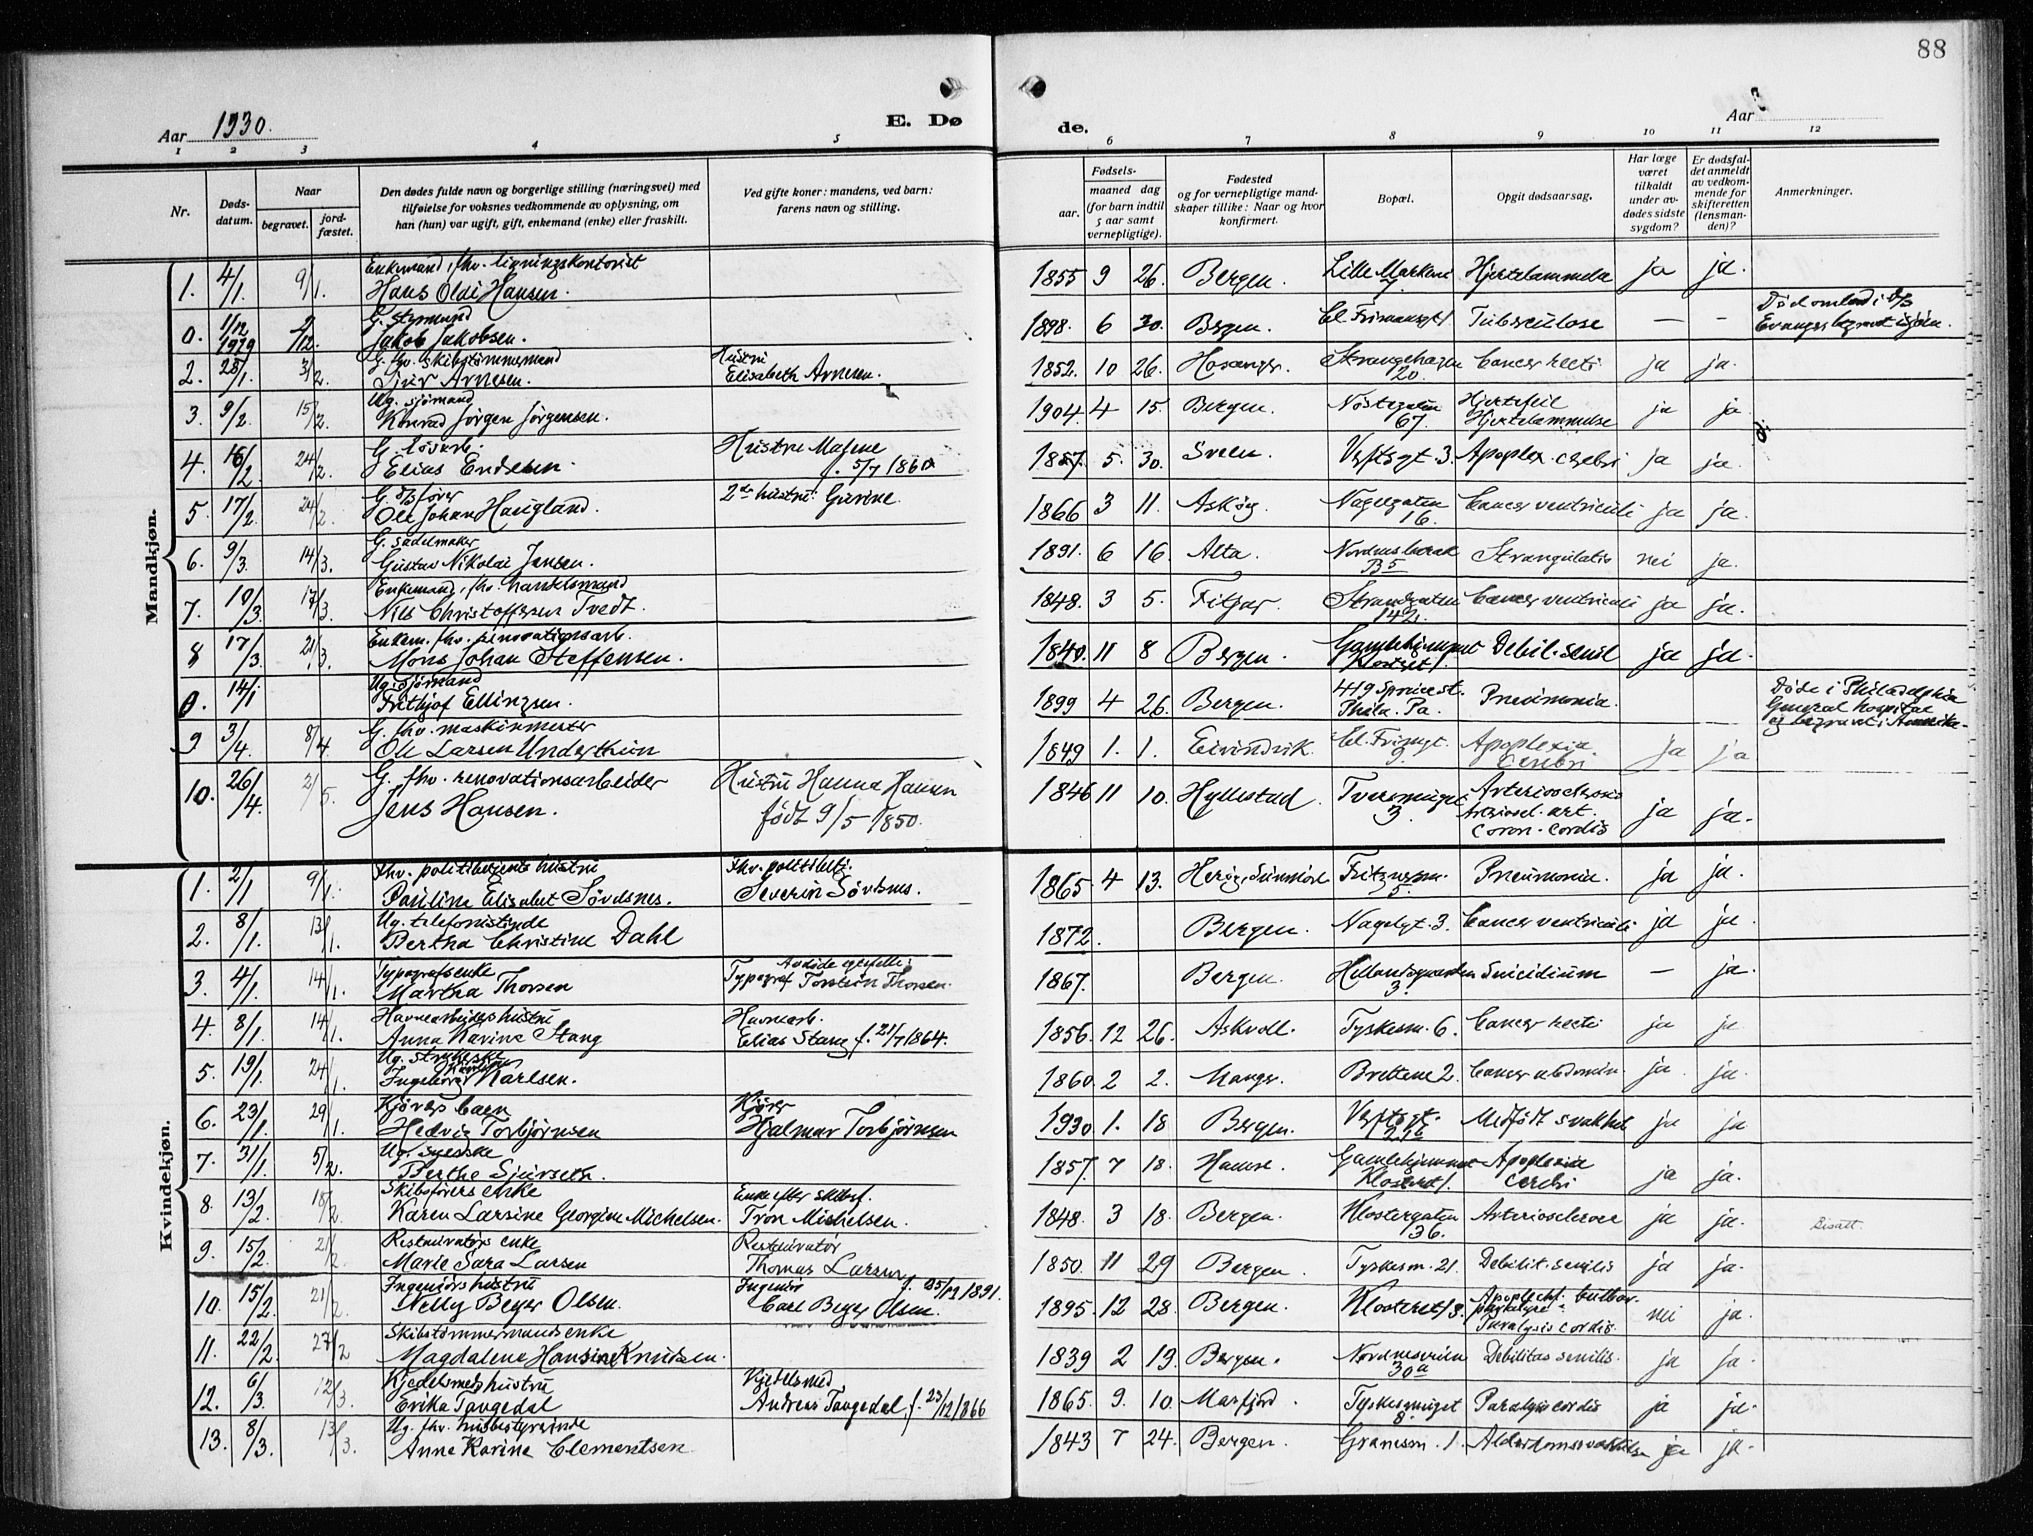 88
Aar 1930.
E. Dø
de.
Aar
1 2 3 4 5 6 7 8 9 10 11 12
Nr.
Døds-
datum.
Naar
begravet.
jord-
fæstet.
Den dødes fulde navn og borgerlige stilling (næringsvei) med
tilføielse for voksnes vedkommende av oplysning, om
han (hun) var ugift, gift, enkemand (enke) eller fraskilt.
Ved gifte koner: mandens, ved barn:
farens navn og stilling.
Fødsels-
aar.
maaned dag
(for barn indtil
5 aar samt
vernepligtige).
Fødested
og for vernepligtige mand-
skaper tillike: Naar og hvor
konfirmert.
Bopæl.
Opgit dødsaarsag.
Har læge
været
tilkaldt
under av-
dødes sidste
sygdom?
Er dødsfal-
det anmeldt
av vedkom-
mende for
skifteretten
(lensman-
den)?
Anmerkninger.
Mandkjøn.
Enkemand, fhv. ligningskontorist
1. 4/1. 9/1. Hans Olai Hansen. 1855 9 26. Bergen. Lille Markevei Hjertelammelse ja ja.
G. Styrmand
0. 1/12 1929 2/12. Jakob Jakobsen. 1898. 6 30. Bergen. Tuberculose — — Død ombord i D/S
Evanger begravet i sjøen.
G. fhv. skibstømmermand
2. 28/1. 3/2. Sjur Arnesen. Hustru
Elisabeth Arnesen. 1852. 10 26. Hosanger. Strangehagen
20. Cancer recti ja ja.
Ug. sjømand
3. 9/2. 15/2. Konrad Jørgen Jørgensen. 1904. 4 15. Bergen. Nøstegaten
67. Hjertefeil
Hjertelammelse ja ja
G. Løsarb.
4. 16/2. 24/2. Elias Endesen. Hustru Malene
f. 5/7 1860. 1857. 5. 30. Sveen. Verftsgt. 3. Apoplex. cerebri ja ja.
G. D/S fører
5. 17/2. 24/2. Ole Johan Haugland. 2den hustru: Gurine. 1866 3 11. Askøy. Nagelgaten
16. Cancer ventriculi ja ja.
G. sadelmaker
6. 9/3. 14/3. Gustav Nikolai Jensen. 1891. 6 16. Alta. B5 Strangulatio nei ja.
Enkemand, fhv. handelsmand
7. 10/3. 17/3. Nils Christoffersen Tvedt. 1848. 3 5. Fitjar. Strandgaten
142. Cancer ventriculi ja ja.
Enkem. fhv. renovationsarb.
8 17/3. 21/3. Mons Johan Steffensen. 1840. 11 8 Bergen. Gamlehjemmet
Klostret 1. Debil. senil ja ja.
Ug. sjømand
0. 14/1 Frithjof Ellingsen. 1899 4 26. Bergen. 419 Spruce st.
Phila. Pa. Pneumonia. Døde i Philadelphia
General hospital
og begravet i Amerika.
G. fhv. maskinmester
9 3/4. 8/4 Ole Larsen Underthun 1849 1. 1. Eivindvik. Apoplexia
cerebri ja ja
G. fhv. renovationsarbeider
10. 26/4. 2/5. Jens Hansen. Hustru Hanna Hansen
født 9/5 1850. 1846 11 10. Hyllestad. Tversmuget
3. Arteriosclerosis
Arteriosel. art.
coron. cordis ja ja.
Kvindekjøn.
Fhv. politibetjents hustru
1. 2/1 9/1. Pauline Elisabet Søvdsnes. Fhv. politibetj.
Severin Søvdsnes. 1865 4 13. Herøy, Sunnmøre 5. Pneumonia. ja ja.
Ug. telefonistinde
2. 8/1. 13/1. Bertha Christine Dahl 1872. Bergen. Nagelgt. 3. Cancer ventriculi ja ja
Typografenke
3. 4/1. 14/1. Martha Thorsen Avdøde egtefelle:
Typograf Torstein Thorsen. 1867. Bergen. 3. Suicidium — ja.
Havnearbeiders hustru
4. 8/1. 14/1. Anna Karine Stang Havnearb.
Elias Stang f. 21/7 1864. 1856. 12 26. Askvoll. Tyskesm. 6. Cancer recti ja ja
Ug. strykerske
5. 19/1. 24/1. Ingeborg Karlsen. 1860. 2 2. Manger. Brettene 2. Cancer abdomin. ja ja.
Kjørers barn
6. 23/1. 29/1. Hedvig Torbjørnsen Kjører
Hjalmar Torbjørnsen 1930. 1. 18 Bergen. Verftsgt. Medfødt svakhet ja ja
Ug. syerske
7. 31/1. 5/2. Berthe Sjurseth. 1857. 7 18. Hamre. Gamlehjemmet
Klosteret 1. Apoplexia
cerebri ja ja.
Skibsførers enke
8. 13/2. 18/2. Karen Larsine Georgine Michelsen. Enke efter skibsf.
Tron Michelsen. 1848. 3 18. Bergen. Klostergaten
136. Arteriosclerose ja ja.
Restauratørs enke
9. 15/2. 21/2. Marie Sara Larsen Restauratør
Thomas Larsen 1850. 11 29 Bergen. Tyskesm. 21. Debilit. senilis ja ja.
Ingeniørs hustru
10. 15/2. 21/2. Nelly Beyer Olsen. Ingeniør f. 25/12 1891.
Carl Beyer Olsen. 1895. 12 28. Bergen. Klosteret 13. Apoplecht. bulbær
paralyse
Paralysis cordis. nei ja.
Skibstømmermands enke
11. 22/2. 27/2 Magdalene Hansine Knutsen. 1839 2 19. Bergen. 30a Debilitas senilis. ja ja.
Kjedelsmeds hustru
12. 6/3. 12/3. Erika Taugedal Kjedelsmed
Andreas Taugedal, f. 23/12 1866 1865. 9. 10. Marfjord. Tyskesmuget
8. Paralysis cordis ja ja.
Ug. fhv. husbestyrerinde
13. 8/3. 13/3. Anne Karine Clementsen 1843 7 24. Bergen. Granesm. 1. Alderdomssvakhet ja ja.